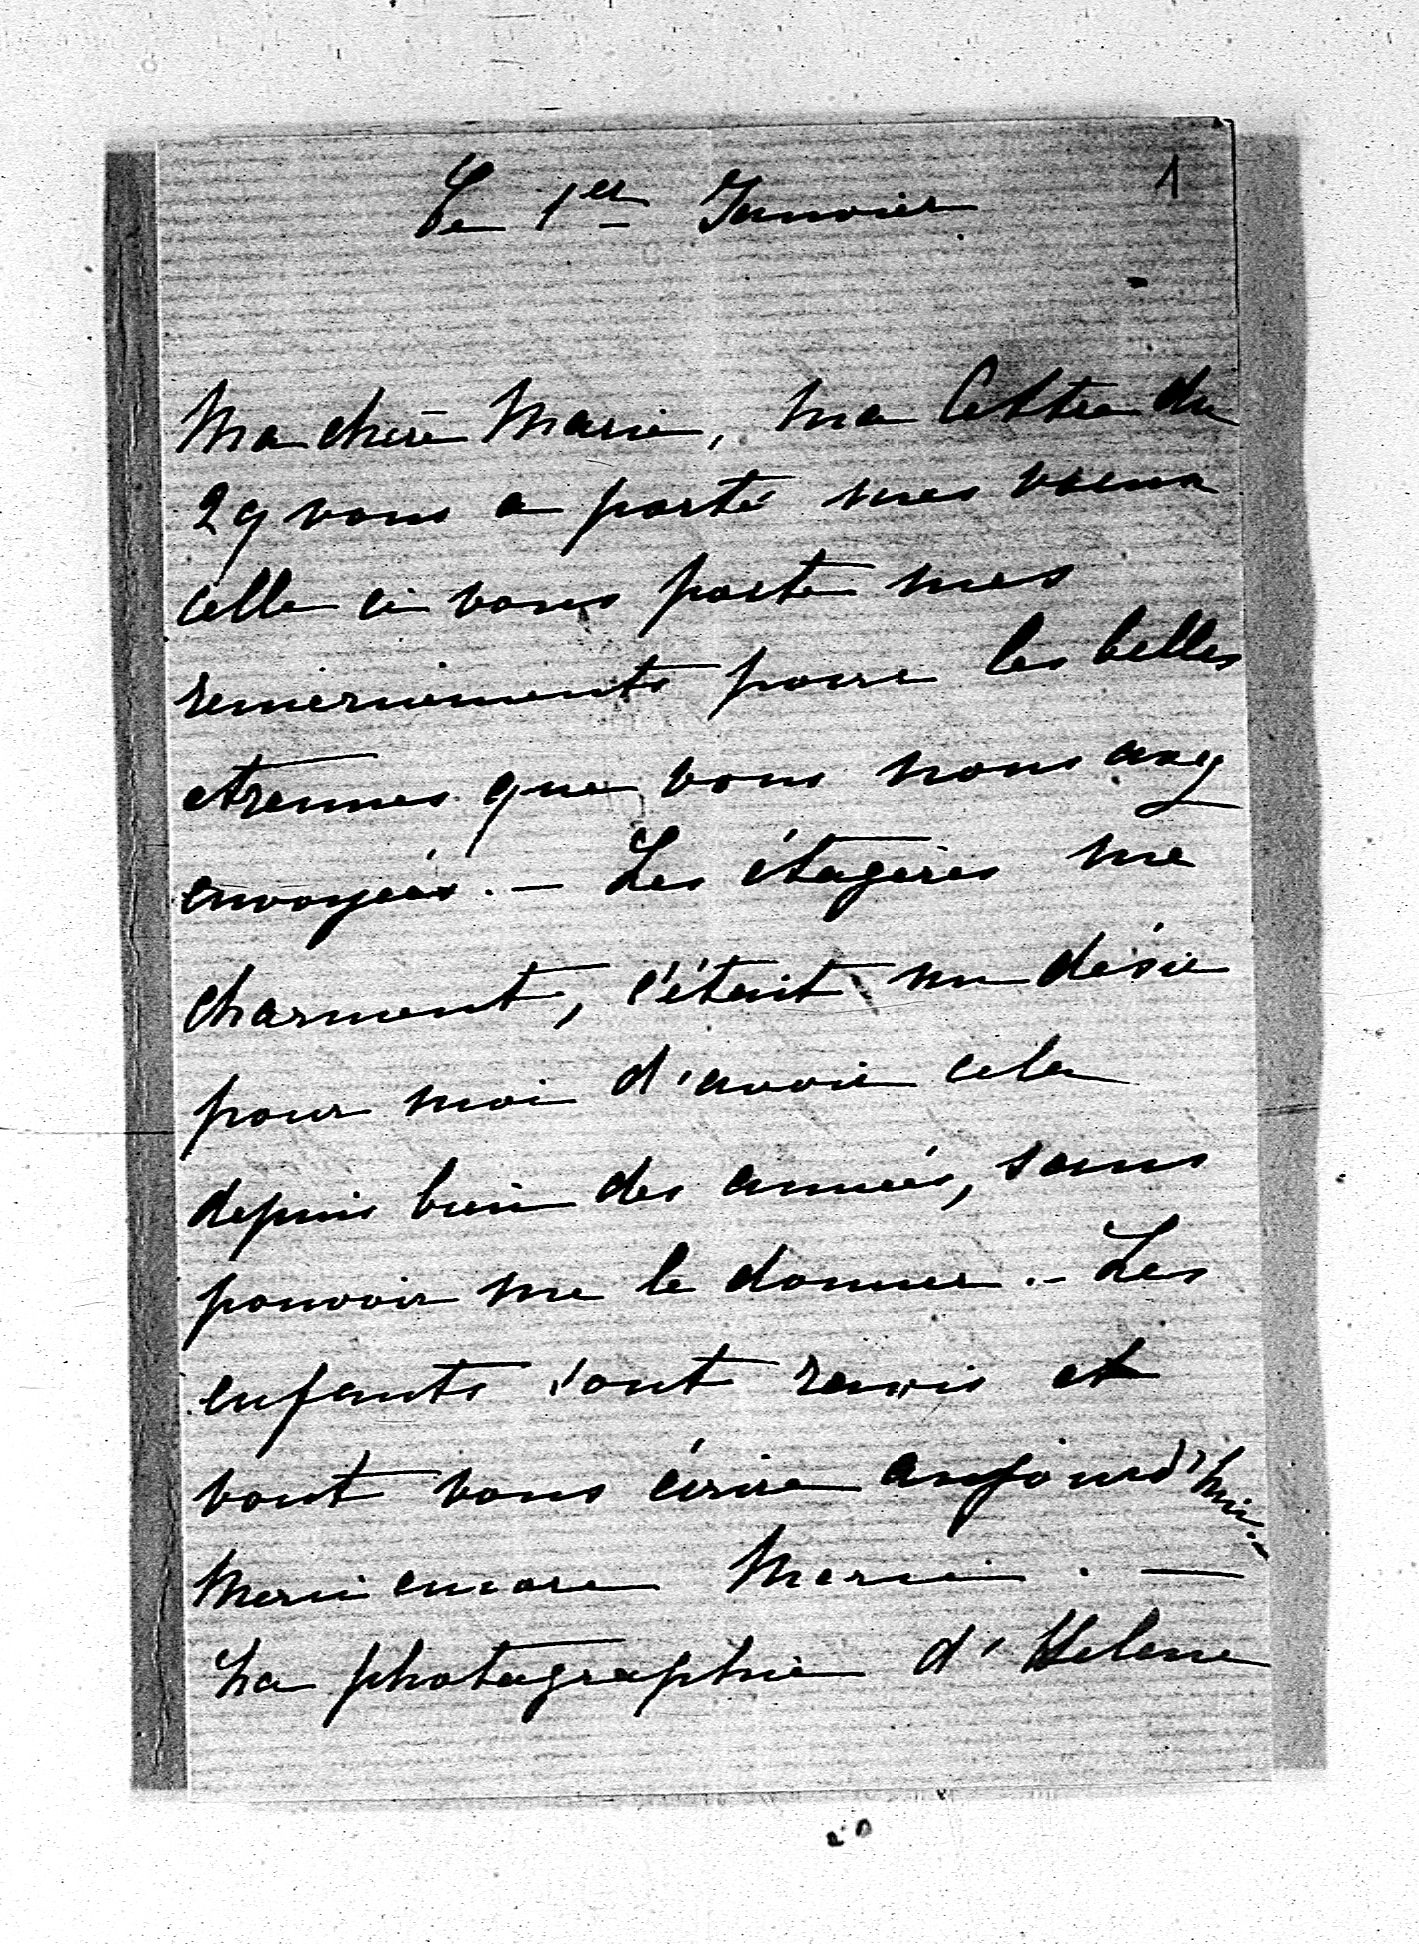 1
Le 1er Janvier
Ma chère Marie, ma lettre du
29 vous a porté mes voeux
celle ci vous porte mes
remerciements pour les belles
etrennes que vous nous avez
envoyées. — Les étagères me
charment, c'était un désir
pour moi d'avoir cela
depuis bien des années, sans
pouvoir me le donner. — Les
enfants sont ravis et
vont vous écrire aujourd'hui. —
Merci encore Merci. —
La photographie d'Helene